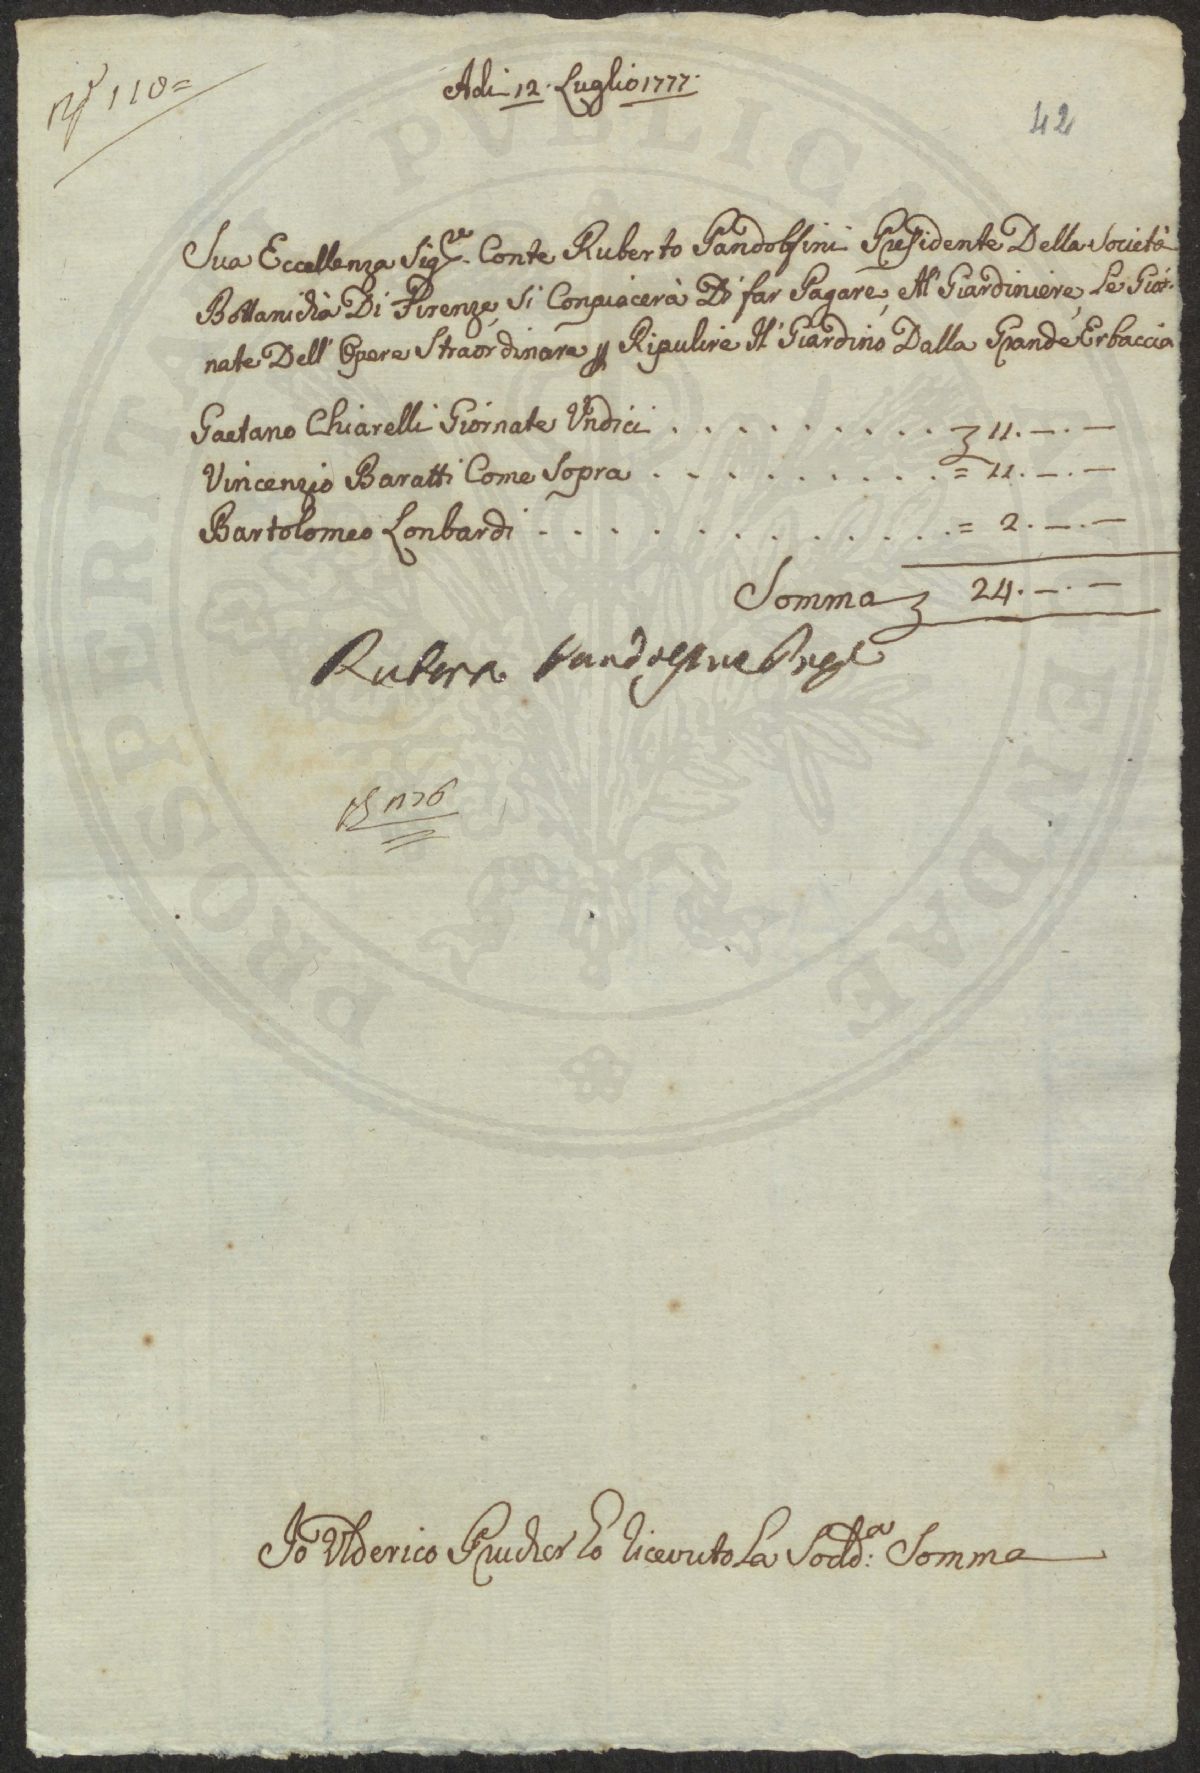 Nº 110 =
Adi 12. Luglio 1777.
42
Sua Eccellenza Sigre. Conte Ruberto Pandolfini Presidente Della Società
Bottanicha Di Firenze, Si Conpiacerà Di far Pagare, Al' Giardiniere, Le Gior-
nate Dell' Opere Straordinare p Ripulire Il' Giardino Dalla Grande Erbaccia
Gaetano Chiarelli Giornate Undici . . . . . . . . . . 11. — . —
Vincenzio Baratti Come Sopra . . . . . . . . . = 11. — . —
Bartolomeo Lonbardi . . . . . . . . . . . . . = 2. — . —
Somma 24. — . —
Ruberto Pandolfini Presi
Io Ulderico Prucher ho ricevuto La Sodda: Somma
PUBLICAE PROSPERITATI AUGENDAE